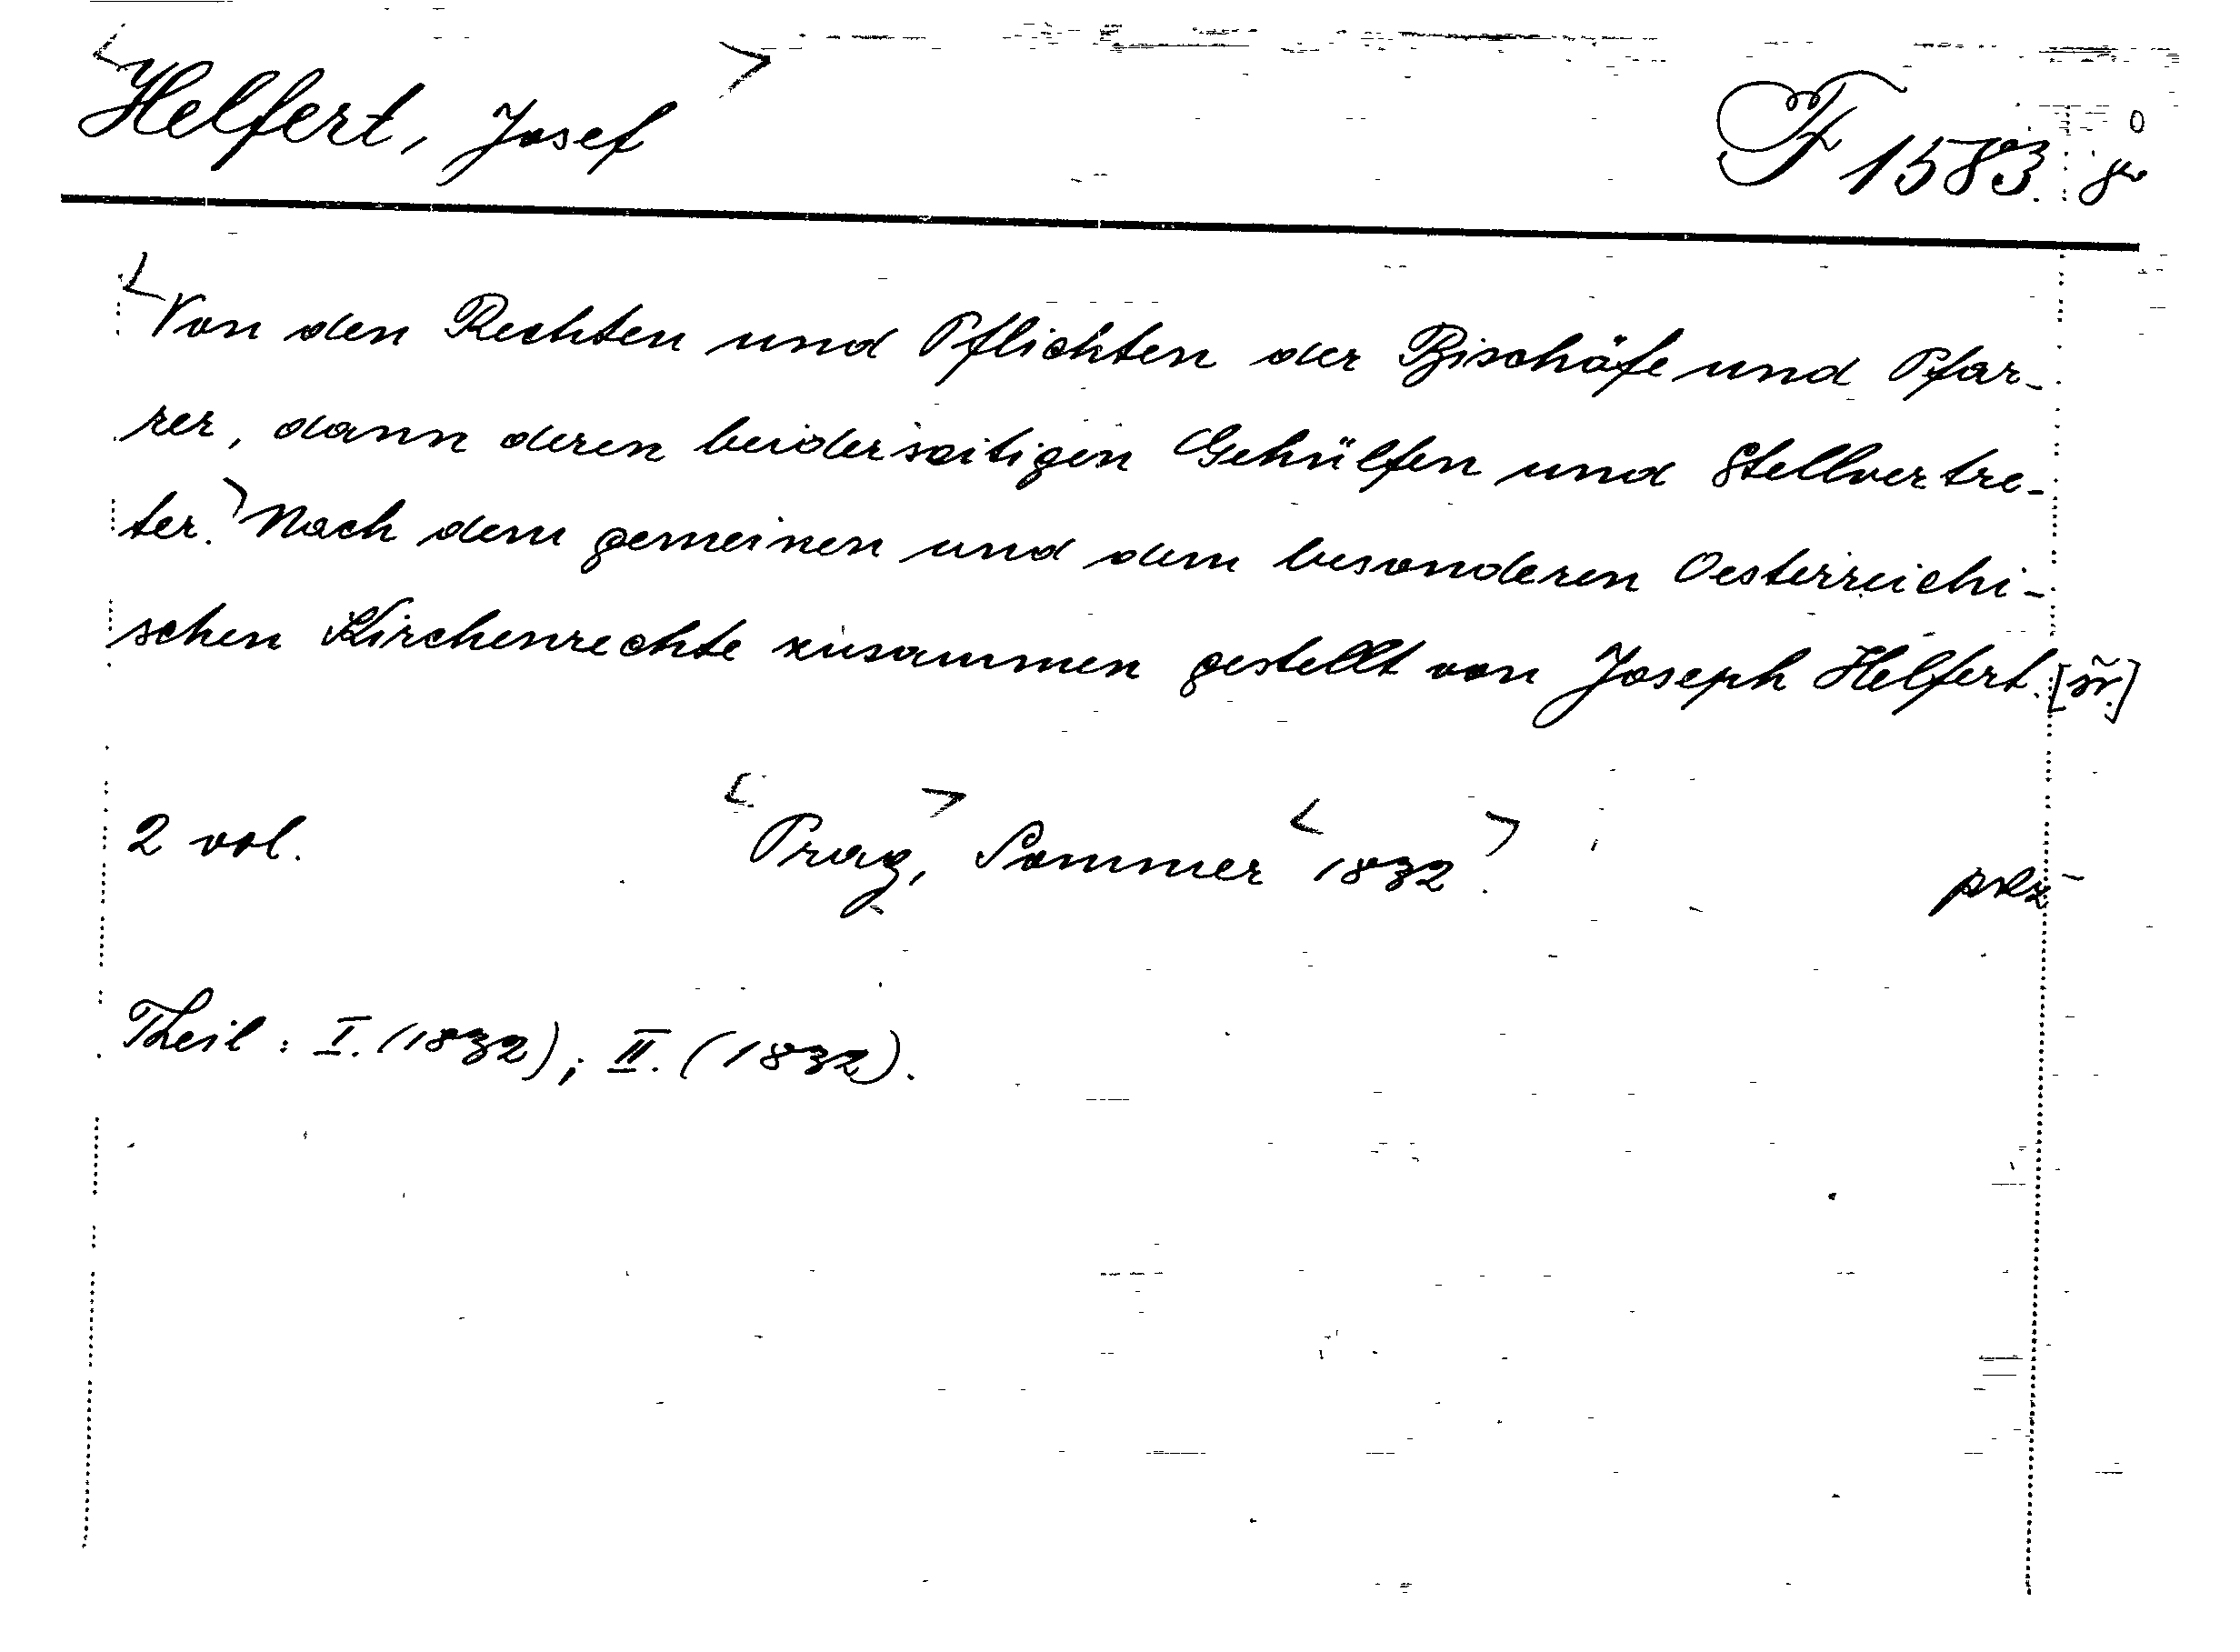 <Helfert, Josef> F 1583. 8°
<Von den Rechten und Pflichten der Bischöfe und Pfar-
rer, dann deren beiderseitigen Gehülfen und Stellvertre-
ter.> Nach dem gemeinen und dem besonderen Oesterreichi-
schen Kirchenrechte zusammen gestellt von Joseph Helfert.
2 vol. <Prag,> Sommer <1832>.
Theil: I. (1832); II. (1832).